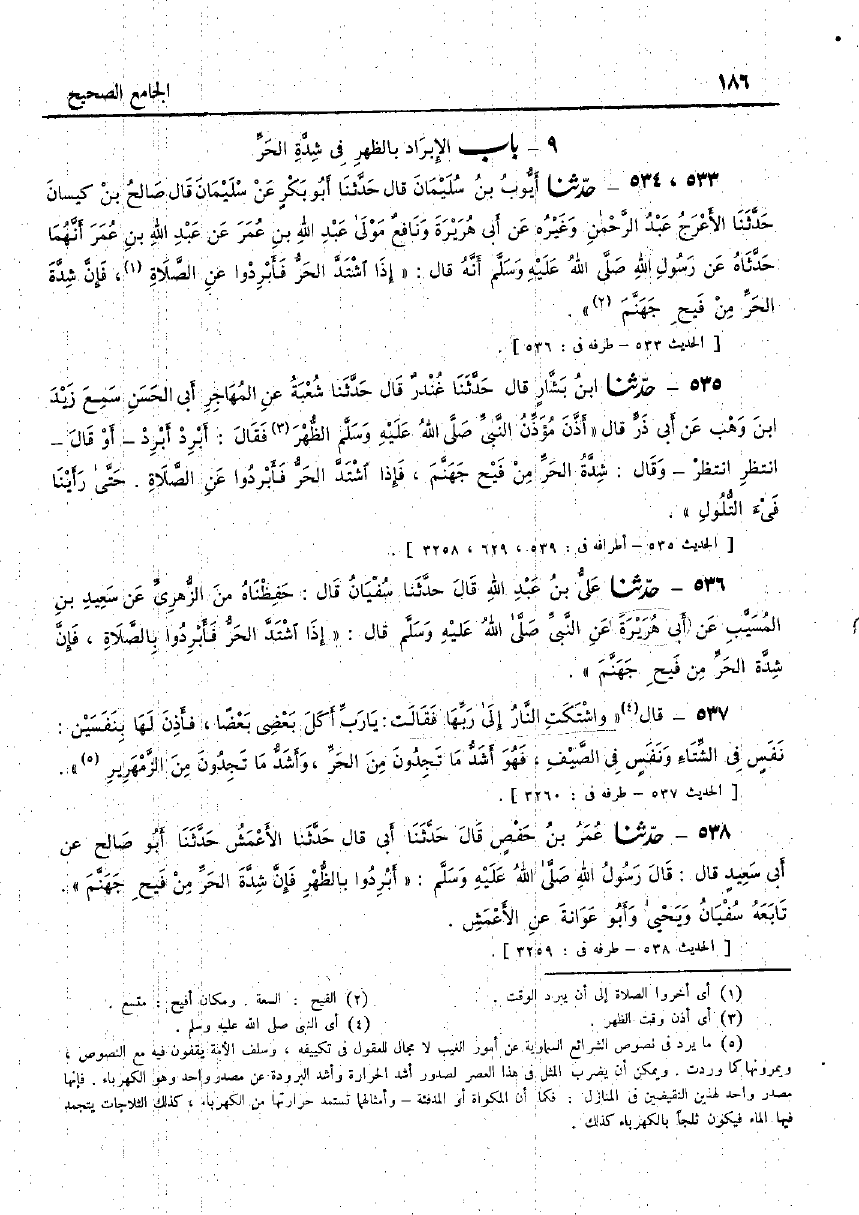 ١٨٦
الجامع الصحيح
٩ - باب الإِبرَاد بالظهرِ فى شِدَّةِ الحَرِّ
٥٣٣ ، ٥٣٤ - حدّثنا أَيُّوبُ بنُ سُلَيْمَانَ قال حَدَّثَنَا أَبُو بَكْرٍ عَنْ سُلَيْمَانَ قَال صَالحُ بنُ كيسانَ
حَدَّثَنَا الأَعْرَجُ عَبْدُ الرَّحْمٰنِ وَغَيْرُه عَن أَبى هُرَيْرَةَ وَنَافعٌ مَوْلَىٰ عَبْدِ اللهِ بنِ عُمَرَ عَن عَبْدِ اللهِ بنِ عُمَرَ أَنَّهُمَا
حَدَّثَاهُ عَن رَسُولِ اللهِ صَلَّى اللهُ عَلَيْهِ وَسَلَّم أَنَّهُ قال : « إِذَا ٱشْتَدَّ الحَرُّ فَأَبْرِدْوا عَنِ الصَّلَاةِ (١) ، فَإِنَّ شِدَّةَ
الحَرِّ مِنْ فَيحِ جَهَنَّمَ (٢) » .
[ الحديث ٥٣٣ - طرفه فى : ٥٣٦ ] .
٥٣٥ - حدّثنا ابنُ بَشَّارٍ قال حَدَّثَنَا غُنْدرٌ قَال حَدَّثَنا شُعْبَةُ عنِ المُهَاجِرِ أَبى الحَسَنِ سَمِعَ زَيْدَ
ابنَ وَهْب عَن أَبى ذَرٍّ قال « أَذَّنَ مُؤَذِّنُ النَّبىِّ صَلَّى اللهُ عَلَيْهِ وَسَلَّم الظُّهْرَ (٣) فَقَالَ : أَبْرِدْ أَبْرِدْ - أَوْ قَالَ -
انتظرِ انتظرْ - وَقَال : شِدَّةُ الحَرِّ مِنْ فَيْحِ جَهَنَّمَ ، فَإِذا ٱشْتَدَّ الحَرُّ فَأَبْرِدُوا عَنِ الصَّلَاةِ . حَتَّىٰ رَأَيْنَا
فَىْءَ التُّلُولِ » .
[ الحديث ٥٣٥ - أطرافه فى : ٥٣٩ ، ٦٢٩ ، ٣٢٥٨ ] .
٥٣٦ - حدّثنا عَلىُّ بنُ عَبْدِ اللهِ قَالَ حدَّثَنَا سُفْيَانُ قَال : حَفِظْنَاهُ منَ الزُّهرِىِّ عَن سَعِيدِ بنِ
المُسَيَّبِ عَن أَبى هُرَيْرَةَ عَنِ النَّبىِّ صَلَّىٰ اللهُ عَلَيْهِ وَسَلَّم قال : « إِذَا ٱشْتَدَّ الحَرُّ فَأَبْرِدُوا بِالصَّلَاةِ ، فَإِنَّ
شِدَّة الحَرِّ مِن فَيحِ جَهَنَّمَ » .
٥٣٧ - قال (٤) « واشْتَكَتِ النَّارُ إِلَىٰ رَبِّهَا فَقَالَت : يَارَبِّ أَكَلَ بَعْضِى بَعْضًا ، فَأَذِنَ لَهَا بِنَفَسَيْنِ :
نَفَسٍ فِى الشِّتَاءِ وَنَفَسٍ فِى الصَّيْفِ ، فَهُوَ أَشَدُّ مَا تَجِدُونَ مِنَ الحَرِّ ، وَأَشَدُّ مَا تَجِدُونَ مِنَ الزَّمْهَرِيرِ (٥) » .
[ الحديث ٥٣٧ - طرفه فى : ٣٢٦٠ ] .
٥٣٨ - حدّثنا عُمَرُ بنُ حَفْصٍ قَالَ حَدَّثَنَا أَبى قال حَدَّثَنا الأَعْمَشُ حَدَّثَنَا أَبُو صَالح عن
أَبى سَعِيدٍ قال : قَالَ رَسُولُ اللهِ صَلَّىٰ اللهُ عَلَيْهِ وَسَلَّم : « أَبْرِدُوا بِالظُّهْرِ فَإِنَّ شِدَّةَ الحَرِّ مِنْ فَيحِ جَهَنَّمَ » .
تَابَعَهُ سُفْيَانُ وَيَحْيىٰ وَأَبُو عَوَانةَ عنِ الأَعْمَشِ .
[ الحديث ٥٣٨ - طرفه فى : ٣٢٥٩ ] .
(١) أى أخروا الصلاة إلى أن يبرد الوقت . (٢) الفيح : السعة . ومكان أفيح : متسع .
(٣) أى أذن وقت الظهر . (٤) أى النبى صلى الله عليه وسلم .
(٥) ما يرد فى نصوص الشرائع السماوية عن أمور الغيب لا مجال للعقول فى تكييفه ، وسلف الأمة يقفون فيه مع النصوص ،
ويمرونها كما وردت . ويمكن أن يضرب المثل فى هذا العصر لصدور أشد الحرارة وأشد البرودة عن مصدر واحد وهو الكهرباء . فإنها
مصدر واحد لهذين النقيضين فى المنازل : فكما أن المكواة أو المدفئة - وأمثالهما تستمد حرارتها من الكهرباء ، كذلك الثلاجات يتجمد
فيها الماء فيكون ثلجاً بالكهرباء كذلك .